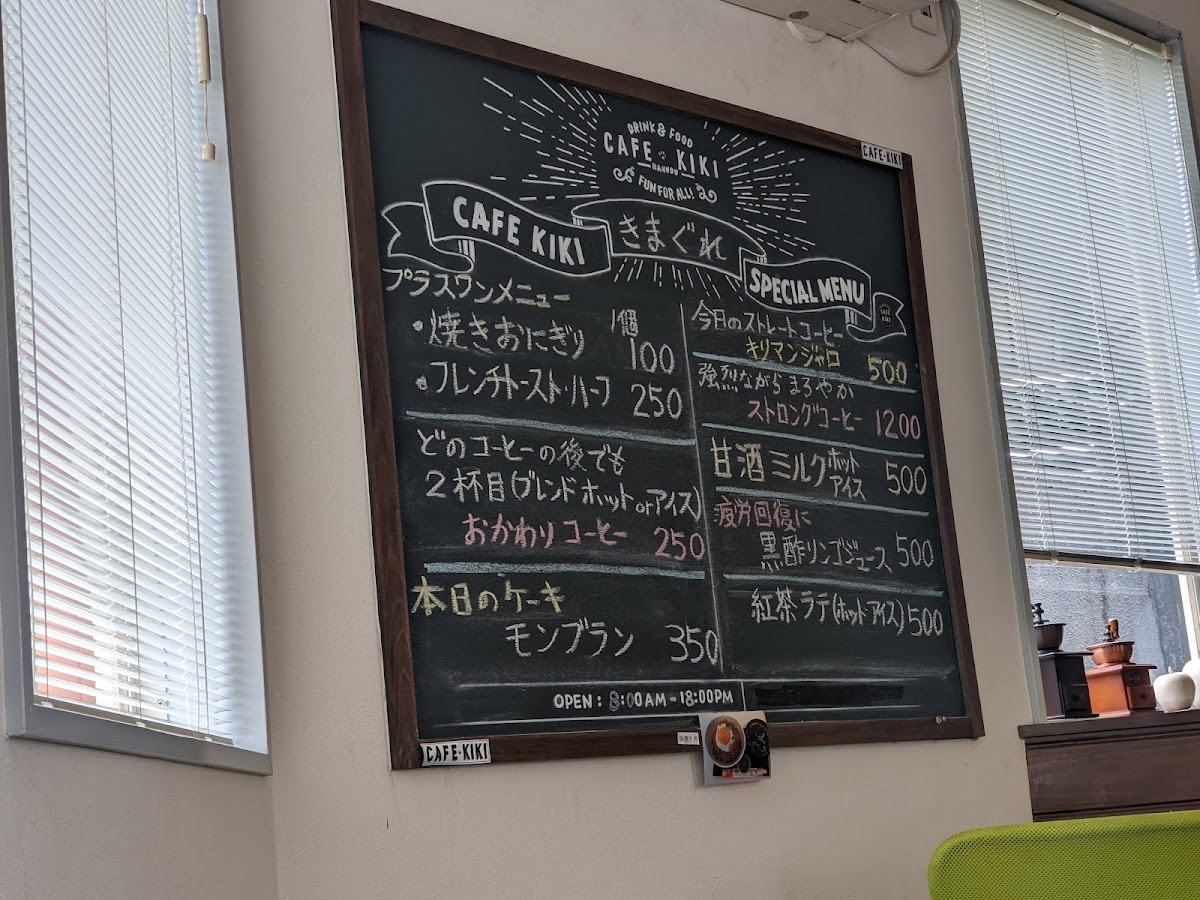 DRINK & FOOD
CAFE KIKI
HANNOU
FUN FOR ALL!
CAFE・KIKI
CAFE KIKI
きまぐれ
SPECIAL MENU
CAFE KIKI
プラスワンメニュー
・焼きおにぎり 1個 100
・フレンチトースト・ハーフ 250
どのコーヒーの後でも
2杯目(ブレンドホットorアイス)
おかわりコーヒー 250
本日のケーキ
モンブラン 350
今日のストレートコーヒー
キリマンジャロ 500
強烈ながらまろやか
ストロングコーヒー 1200
甘酒ミルク ホット アイス 500
疲労回復に
黒酢リンゴジュース 500
紅茶ラテ(ホット・アイス) 500
OPEN : 8:00AM - 18:00PM
CAFE・KIKI